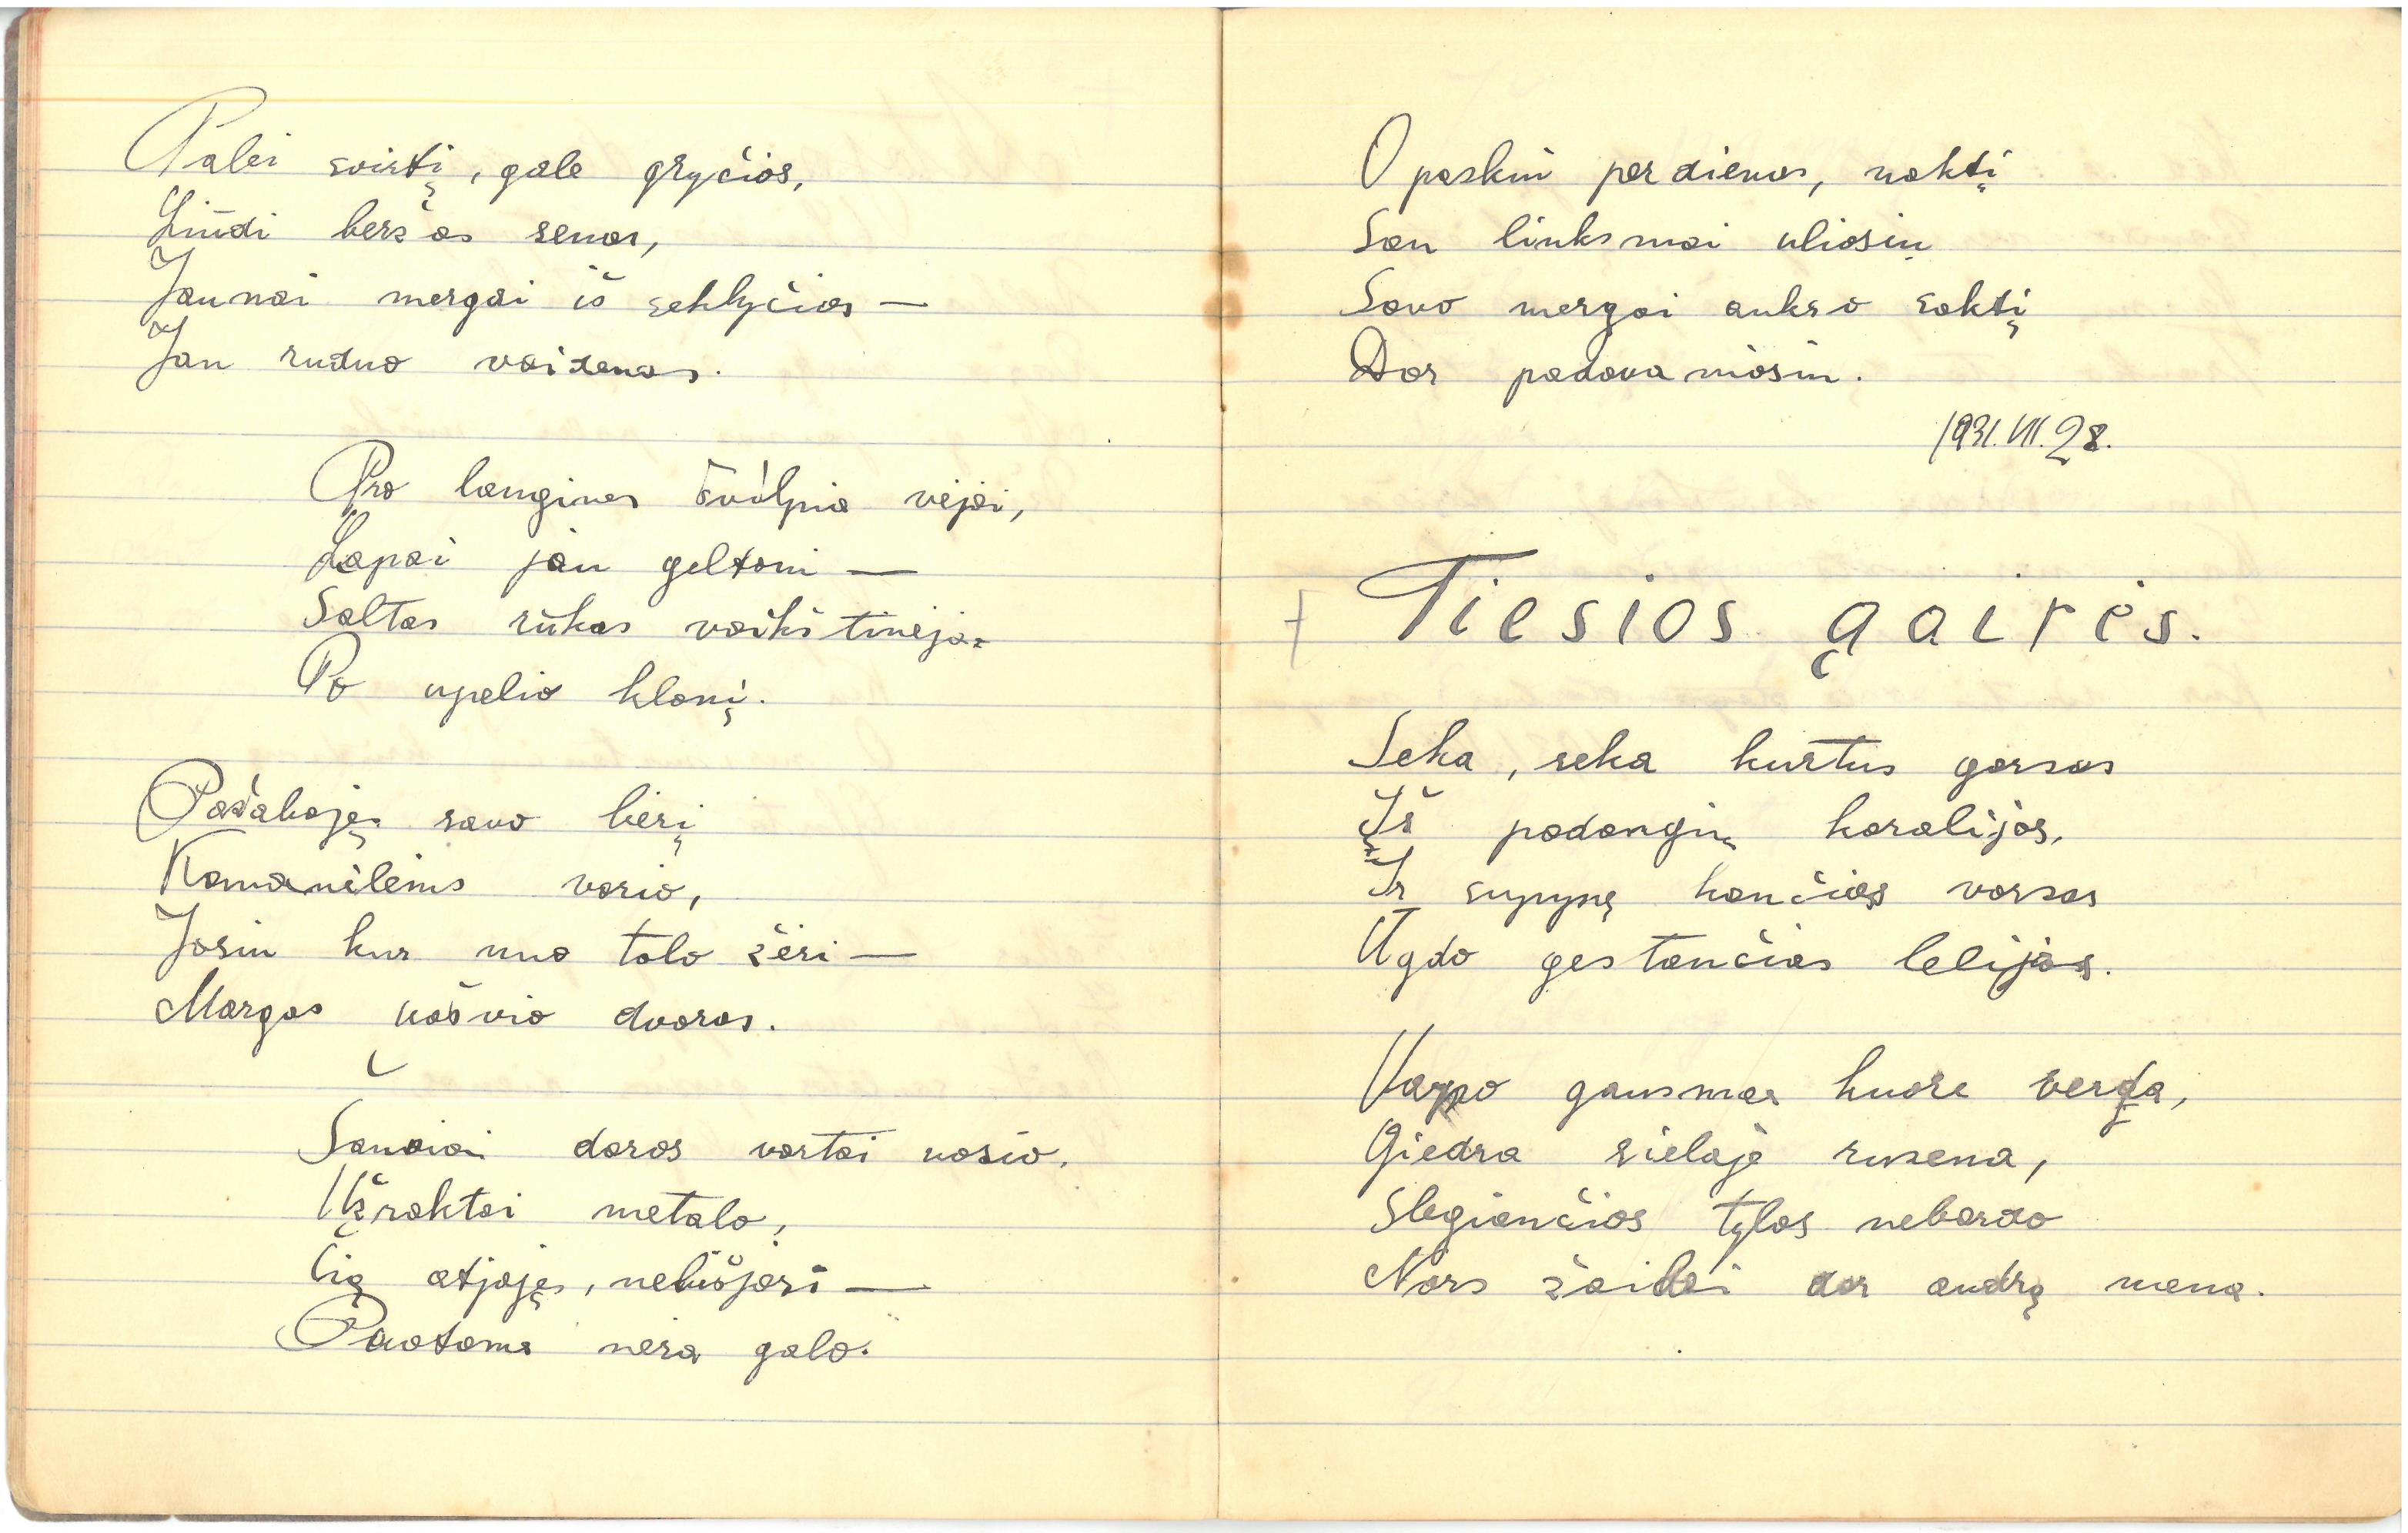 Palei svirtį, gale gryčios,
Liūdi beržas senas,
Jaunai mergai iš seklyčios —
Jau ruduo vaidenas.
Pro langines švilpia vėjai,
Lapai jau geltoni —
Šaltas rūkas vaikštinėja
Po upelio klonį.
Pažabojęs savo bėrį
Kamanėlėms vario,
Josiu kur nuo tolo žėri —
Margas uošvio dvaras.
Senoviai daros vartai uošio,
Užraktai metalo,
Čia atjojęs, nebišjosi —
Puotoms nėra galo.
O paskui per dienas, naktį
Sau linksmai uliosiu
Savo mergai aukso saktį
Dar padovanosiu.
1931.VII.28.
+ Tiesios gairės.
Seka, seka kurtus garsas
Iš padangių koralijos,
Ir supynę kančios varsas
Ugdo gęstančias lelijas.
Varpo gausmas kuore verda,
Giedra sieloje rusena,
Slegiančios tylos nebardo
Nors žaibai dar audrą mena.